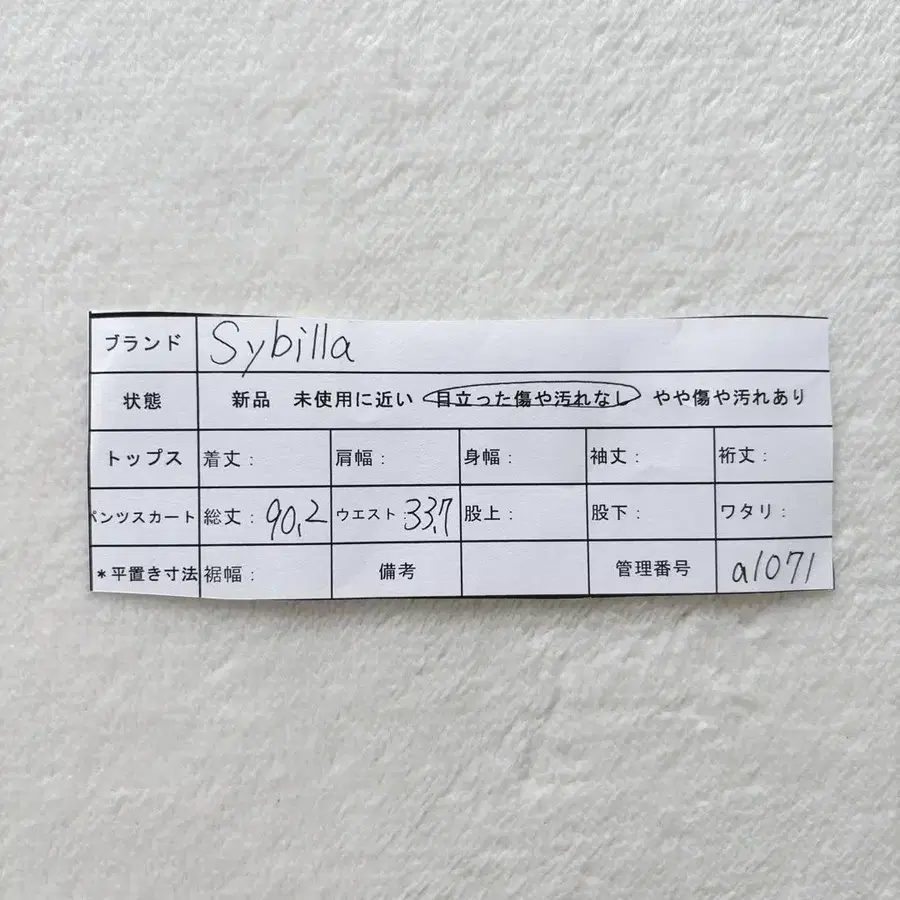 ブランド Sybilla
状態 新品 未使用に近い 目立った傷や汚れなし やや傷や汚れあり
トップス 着丈: 肩幅: 身幅: 袖丈: 裄丈:
パンツスカート 総丈: 90.2 ウエスト: 33.7 股上: 股下: ワタリ:
*平置き寸法 裾幅: 備考 管理番号 a1071